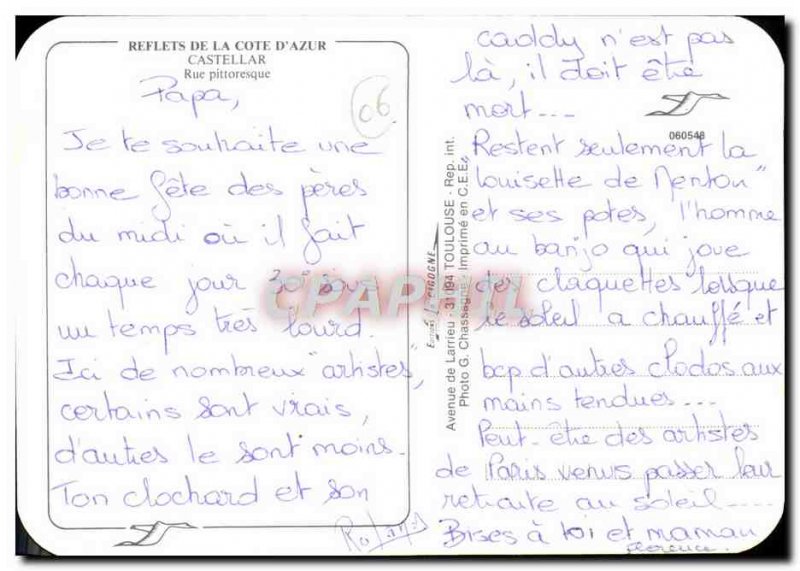 REFLETS DE LA COTE D'AZUR
CASTELLAR
Rue pittoresque
06
Papa,
Je te souhaite une
bonne fête des pères
du midi où il fait
chaque jour 30° sous
un temps très lourd.
Ici de nombreux "artistes",
certains sont vrais,
d'autres le sont moins.
Ton clochard et son
caddy n'est pas
là, il doit être
mort...
060548
Restent seulement la
"louisette de Menton"
et ses potes, l'homme
au banjo qui joue
des claquettes lorsque
le soleil a chauffé et
bcp d'autres clodos aux
mains tendues...
Peut-être des artistes
de Paris venus passer leur
retraite au soleil....
Bises à toi et maman
Florence.
Editions La CIGOGNE
Avenue de Larrieu - 31094 TOULOUSE - Rep. int.
Photo G. Chassagne - Imprimé en C.E.E.
CPAPHIL